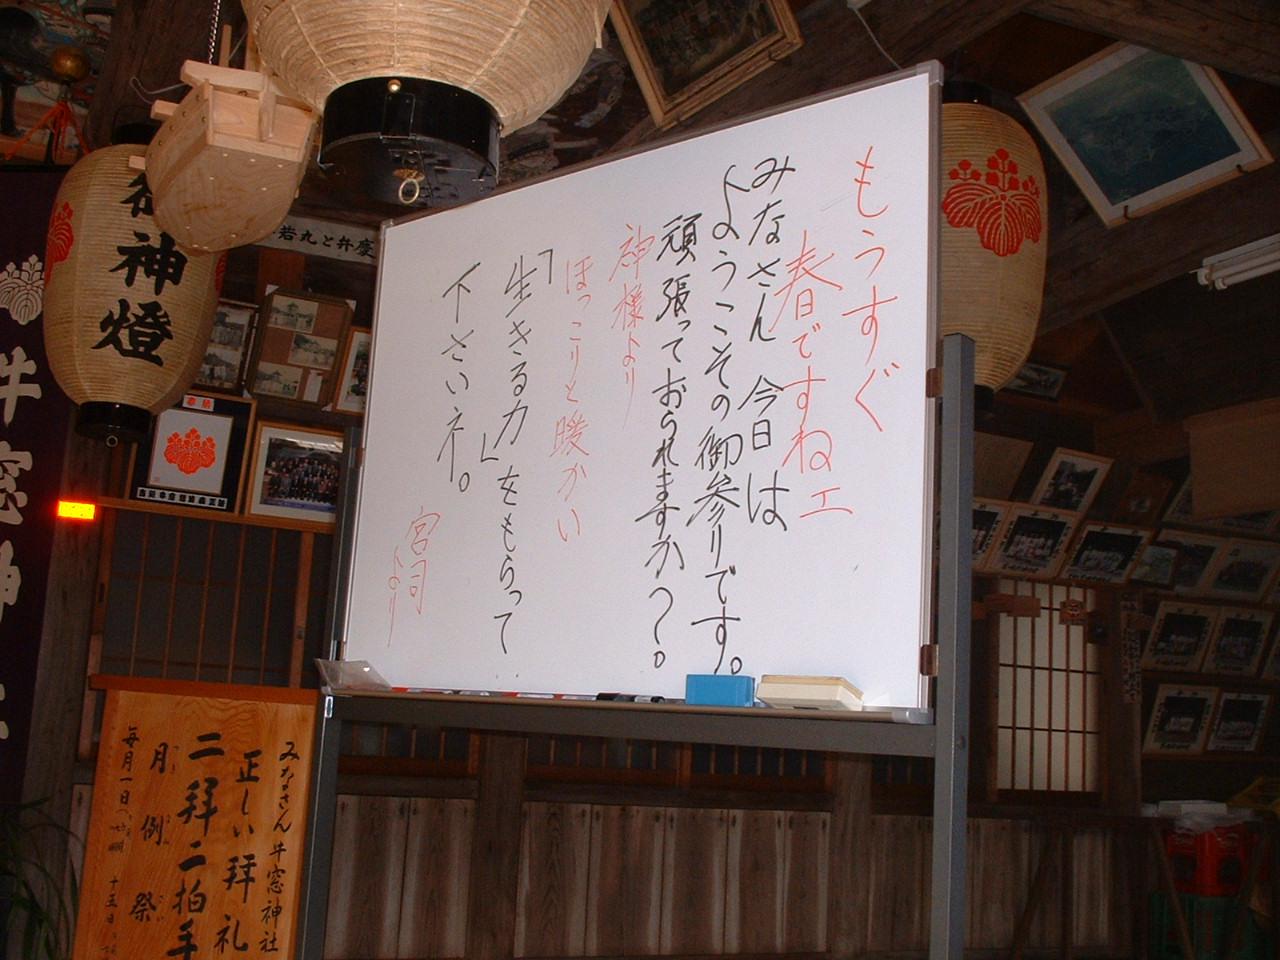 もうすぐ
春ですねエ
みなさん 今日は
ようこその御参りです。
頑張っておられますか?
神様より
ほっこりと暖かい
「生きる力」をもらって
下さいネ。
宮司より
御神燈
若丸と弁慶
奉納
牛窓神社
みなさん牛窓神社
正しい拝礼
二拝二拍手
月例祭
毎月一日
十五日